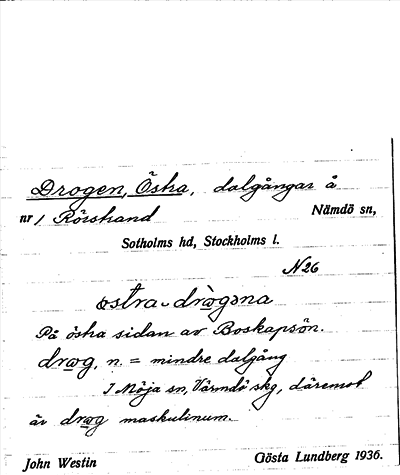 Drogen, Östra, dalgångar å
nr 1 Rörstrand Nämdö sn,
Sotholms hd, Stockholms l.
N26
östra-drògəna
På östra sidan av Boskapsön.
drog, n. = mindre dalgång
I Möja sn, Värmdö skg, däremot
är drog maskulinum.
John Westin Gösta Lundberg 1936.